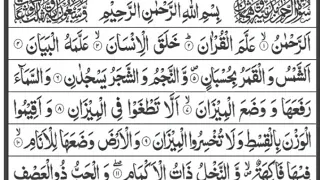 بِسْمِ اللهِ الرَّحْمٰنِ الرَّحِيْمِ
اَلرَّحْمٰنُ ۙ﴿۱﴾ عَلَّمَ الْقُرْاٰنَ ؕ﴿۲﴾ خَلَقَ الْاِنْسَانَ ۙ﴿۳﴾ عَلَّمَهُ الْبَيَانَ ﴿۴﴾
اَلشَّمْسُ وَ الْقَمَرُ بِحُسْبَانٍ ﴿۵﴾ وَّ النَّجْمُ وَ الشَّجَرُ يَسْجُدٰنِ ﴿۶﴾ وَ السَّمَآءَ
رَفَعَهَا وَ وَضَعَ الْمِيْزَانَ ۙ﴿۷﴾ اَلَّا تَطْغَوْا فِى الْمِيْزَانِ ﴿۸﴾ وَ اَقِيْمُوا
الْوَزْنَ بِالْقِسْطِ وَ لَا تُخْسِرُوا الْمِيْزَانَ ﴿۹﴾ وَ الْاَرْضَ وَضَعَهَا لِلْاَنَامِ ۙ﴿۱۰﴾
فِيْهَا فَاكِهَةٌ ۪ۙ وَّ النَّخْلُ ذَاتُ الْاَكْمَامِ ۖ﴿۱۱﴾ وَ الْحَبُّ ذُو الْعَصْفِ